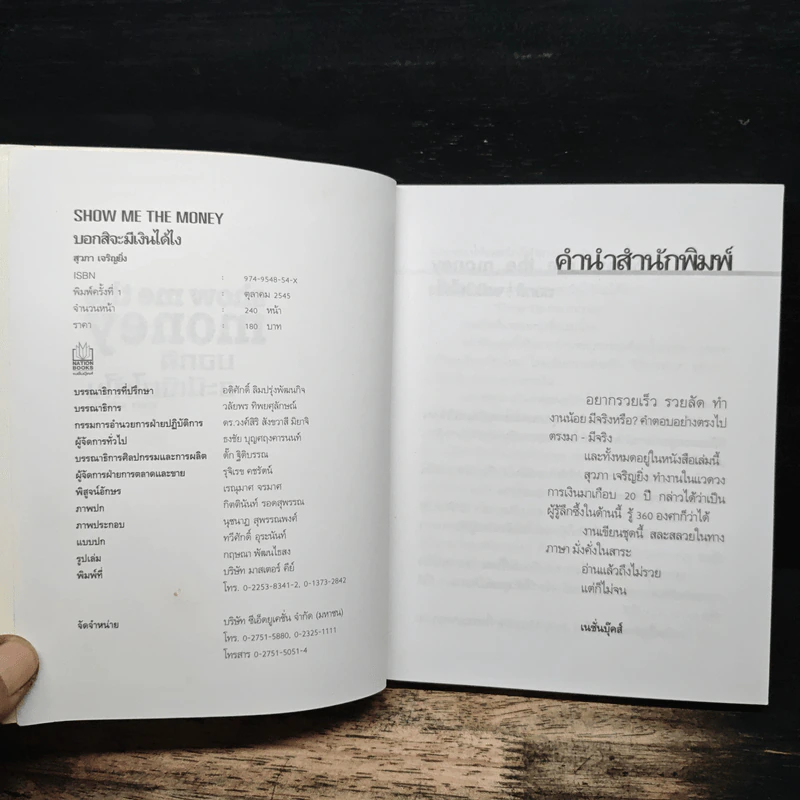 SHOW ME THE MONEY
บอกสิจะมีเงินได้ไง
สุวภา เจริญยิ่ง
ISBN : 974-9548-54-X
พิมพ์ครั้งที่ 1 : ตุลาคม 2545
จำนวนหน้า : 240 หน้า
ราคา : 180 บาท
NATION
BOOKS
บรรณาธิการที่ปรึกษา : อดิศักดิ์ ลิมปรุ่งพัฒนกิจ
บรรณาธิการ : วลัยพร ทิพยศุลักษณ์
กรรมการอำนวยการฝ่ายปฏิบัติการ : ดร.วงศ์สิริ สังขวาสี มิยาจิ
ผู้จัดการทั่วไป : ธงชัย บุญศฤงคารนนท์
บรรณาธิการศิลปกรรมและการผลิต : ตั๊ก ฐิติบรรณ
ผู้จัดการฝ่ายการตลาดและขาย : รุจิเรข คชรัตน์
พิสูจน์อักษร : เรณุมาศ จรมาศ
ภาพปก : กิตตินันท์ รอดสุพรรณ
ภาพประกอบ : นุชนาฏ สุพรรณพงศ์
แบบปก : ทวีศักดิ์ อุระนันท์
รูปเล่ม : กฤษณา พัฒนไธสง
พิมพ์ที่ : บริษัท มาสเตอร์ คีย์
โทร. 0-2253-8341-2, 0-1373-2842
จัดจำหน่าย : บริษัท ซีเอ็ดยูเคชั่น จำกัด (มหาชน)
: โทร. 0-2751-5880, 0-2325-1111
: โทรสาร 0-2751-5051-4
คำนำสำนักพิมพ์
อยากรวยเร็ว รวยลัด ทำ
งานน้อย มีจริงหรือ? คำตอบอย่างตรงไป
ตรงมา - มีจริง
และทั้งหมดอยู่ในหนังสือเล่มนี้
สุวภา เจริญยิ่ง ทำงานในแวดวง
การเงินมาเกือบ 20 ปี กล่าวได้ว่าเป็น
ผู้รู้ลึกซึ้งในด้านนี้ รู้ 360 องศาก็ว่าได้
งานเขียนชุดนี้ สละสลวยในทาง
ภาษา มั่งคั่งในสาระ
อ่านแล้วถึงไม่รวย
แต่ก็ไม่จน
เนชั่นบุ๊คส์